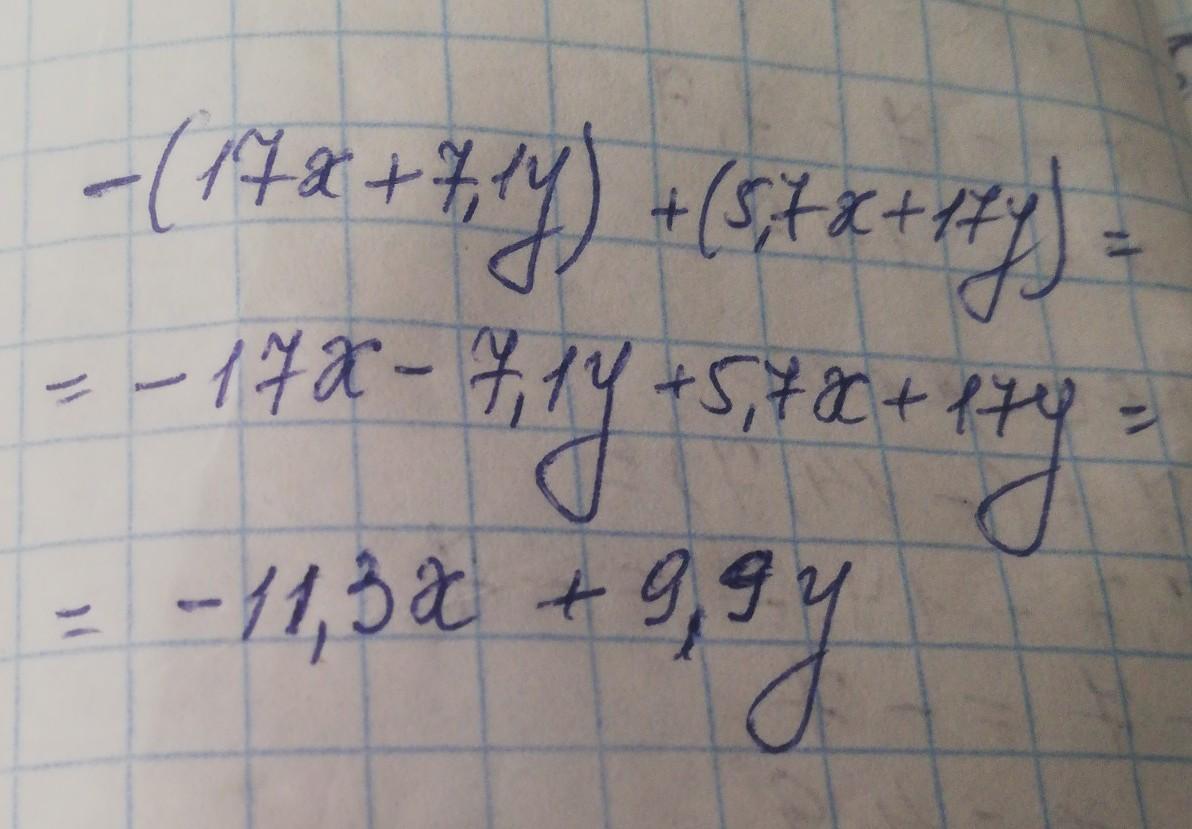 -(17x+7,1y) +(5,7x+17y) =
= -17x - 7,1y +5,7x + 17y =
= -11,3x + 9,9y